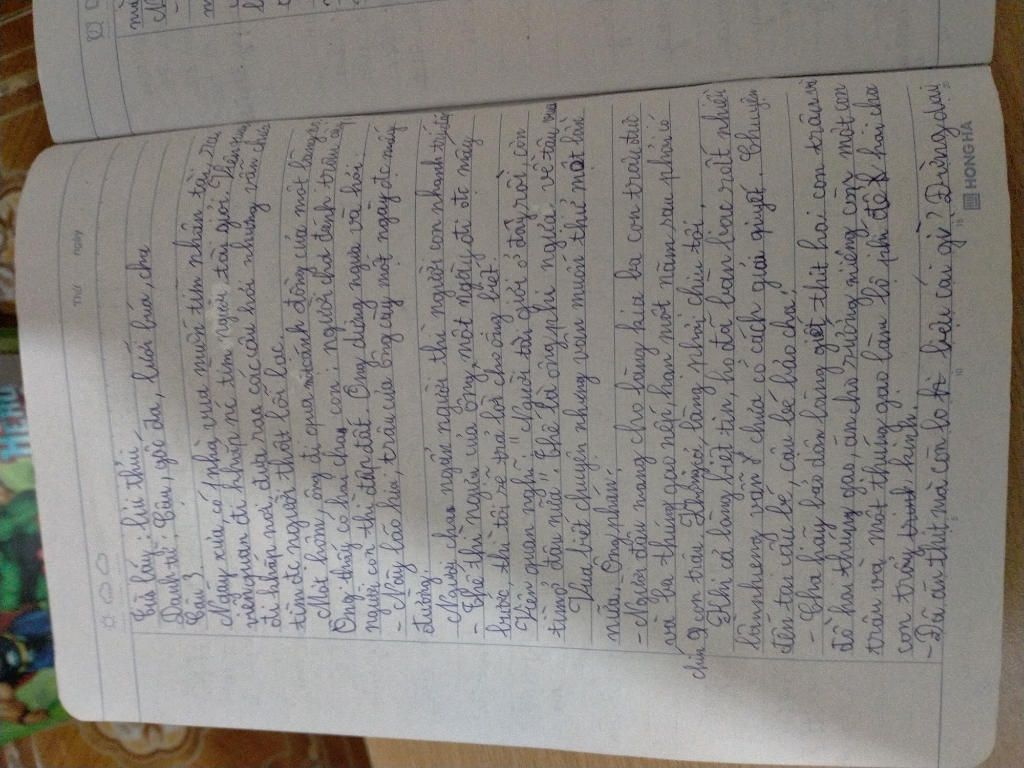 Thứ ngày
Từ láy: líu ríu
Danh từ: Cây, gốc đa, lưỡi búa, cha
Câu 3.
Ngày xưa có nhà vua muốn tìm nhân tài, sai
viên quan đi khắp nc tìm người tài giỏi. Viên
đi khắp nơi, đưa ra các câu hỏi nhưng vẫn chưa
tìm đc người thật lỗi lạc.
Một hôm, ông đi qua một cánh đồng của một làng
Ông thấy có hai cha con: người cha đánh trâu cày,
người con thì đập đất. Ông dừng ngựa và hỏi:
- Này lão kia, trâu của lão cày một ngày đc mấy
đường.
Người cha ngẩn người thì người con nhanh
- Thế thì ngựa của ông, một ngày đi đc mấy
bước, thì tôi sẽ trả lời cho ông biết.
Viên quan nghĩ: "Người tài giỏi ở đây rồi, còn
tìm ở đâu nữa". Thế là ông phi ngựa về tâu vua
Vua biết chuyện nhưng vẫn muốn thử một lần
nữa. Ông phán:
- Người đâu mang cho làng kia ba con trâu đực
và ba thúng gạo nếp hạn một năm sau phải có
chín 9 con trâu. Không, làng phải chịu tội.
Khi cả làng biết tin, họ đã bàn bạc rất nhiều
lần nhưng vẫn chưa có cách giải quyết. Chuyện
đến tai cậu bé, cậu bé bảo cha:
- Cha hãy bảo dân làng giết thịt hai con trâu và
đồ hai thúng gạo, ăn cho sướng miệng còn một con
trâu và một thúng gạo làm lộ phí để hai cha
con trẩy kinh.
- Đã ăn thịt mà còn lo liệu cái gì? Đừng dại
HONG HA